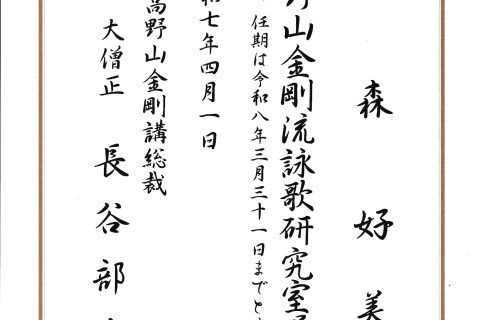 森好美
山金剛流詠歌研究室
任期は令和八年三月三十一日までと
和七年四月一日
高野山金剛講総裁
大僧正 長谷部